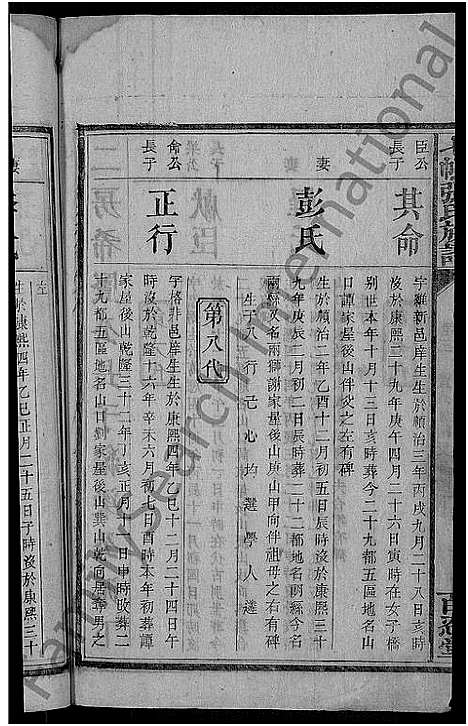 臣公長子
其命
字維新邑庠生生於順治三年丙戌九月二十八日亥時
沒於康熙二十九年庚午四月二十六日寅時在女子橋
別世本年十月十三日亥時葬今二十九都五區地名山
口譚家屋後山伴父之左有碑
妻
彭氏
生於順治二年乙酉十二月初五日辰時沒於康熙三十
九年庚辰二月初二日辰時葬二十二都地名兩絲今名
兩獅謝家屋後山庚山甲向伴祖母之右有碑
生子八行己心均選學人達
第八代
命公長子
正行
字格非邑庠生生於康熙四年乙巳十二月二十四日午
時沒於乾隆十六年辛未六月初七日酉時本年初葬譚
家屋後山乾隆三十二年丁亥正月二十一日申時改葬二
十九都五區地名山口譚家屋後山巽山乾向居葬男之
左
妻
生於康熙四年乙巳正月二十五日子時沒於康熙三十
FamilySearch International